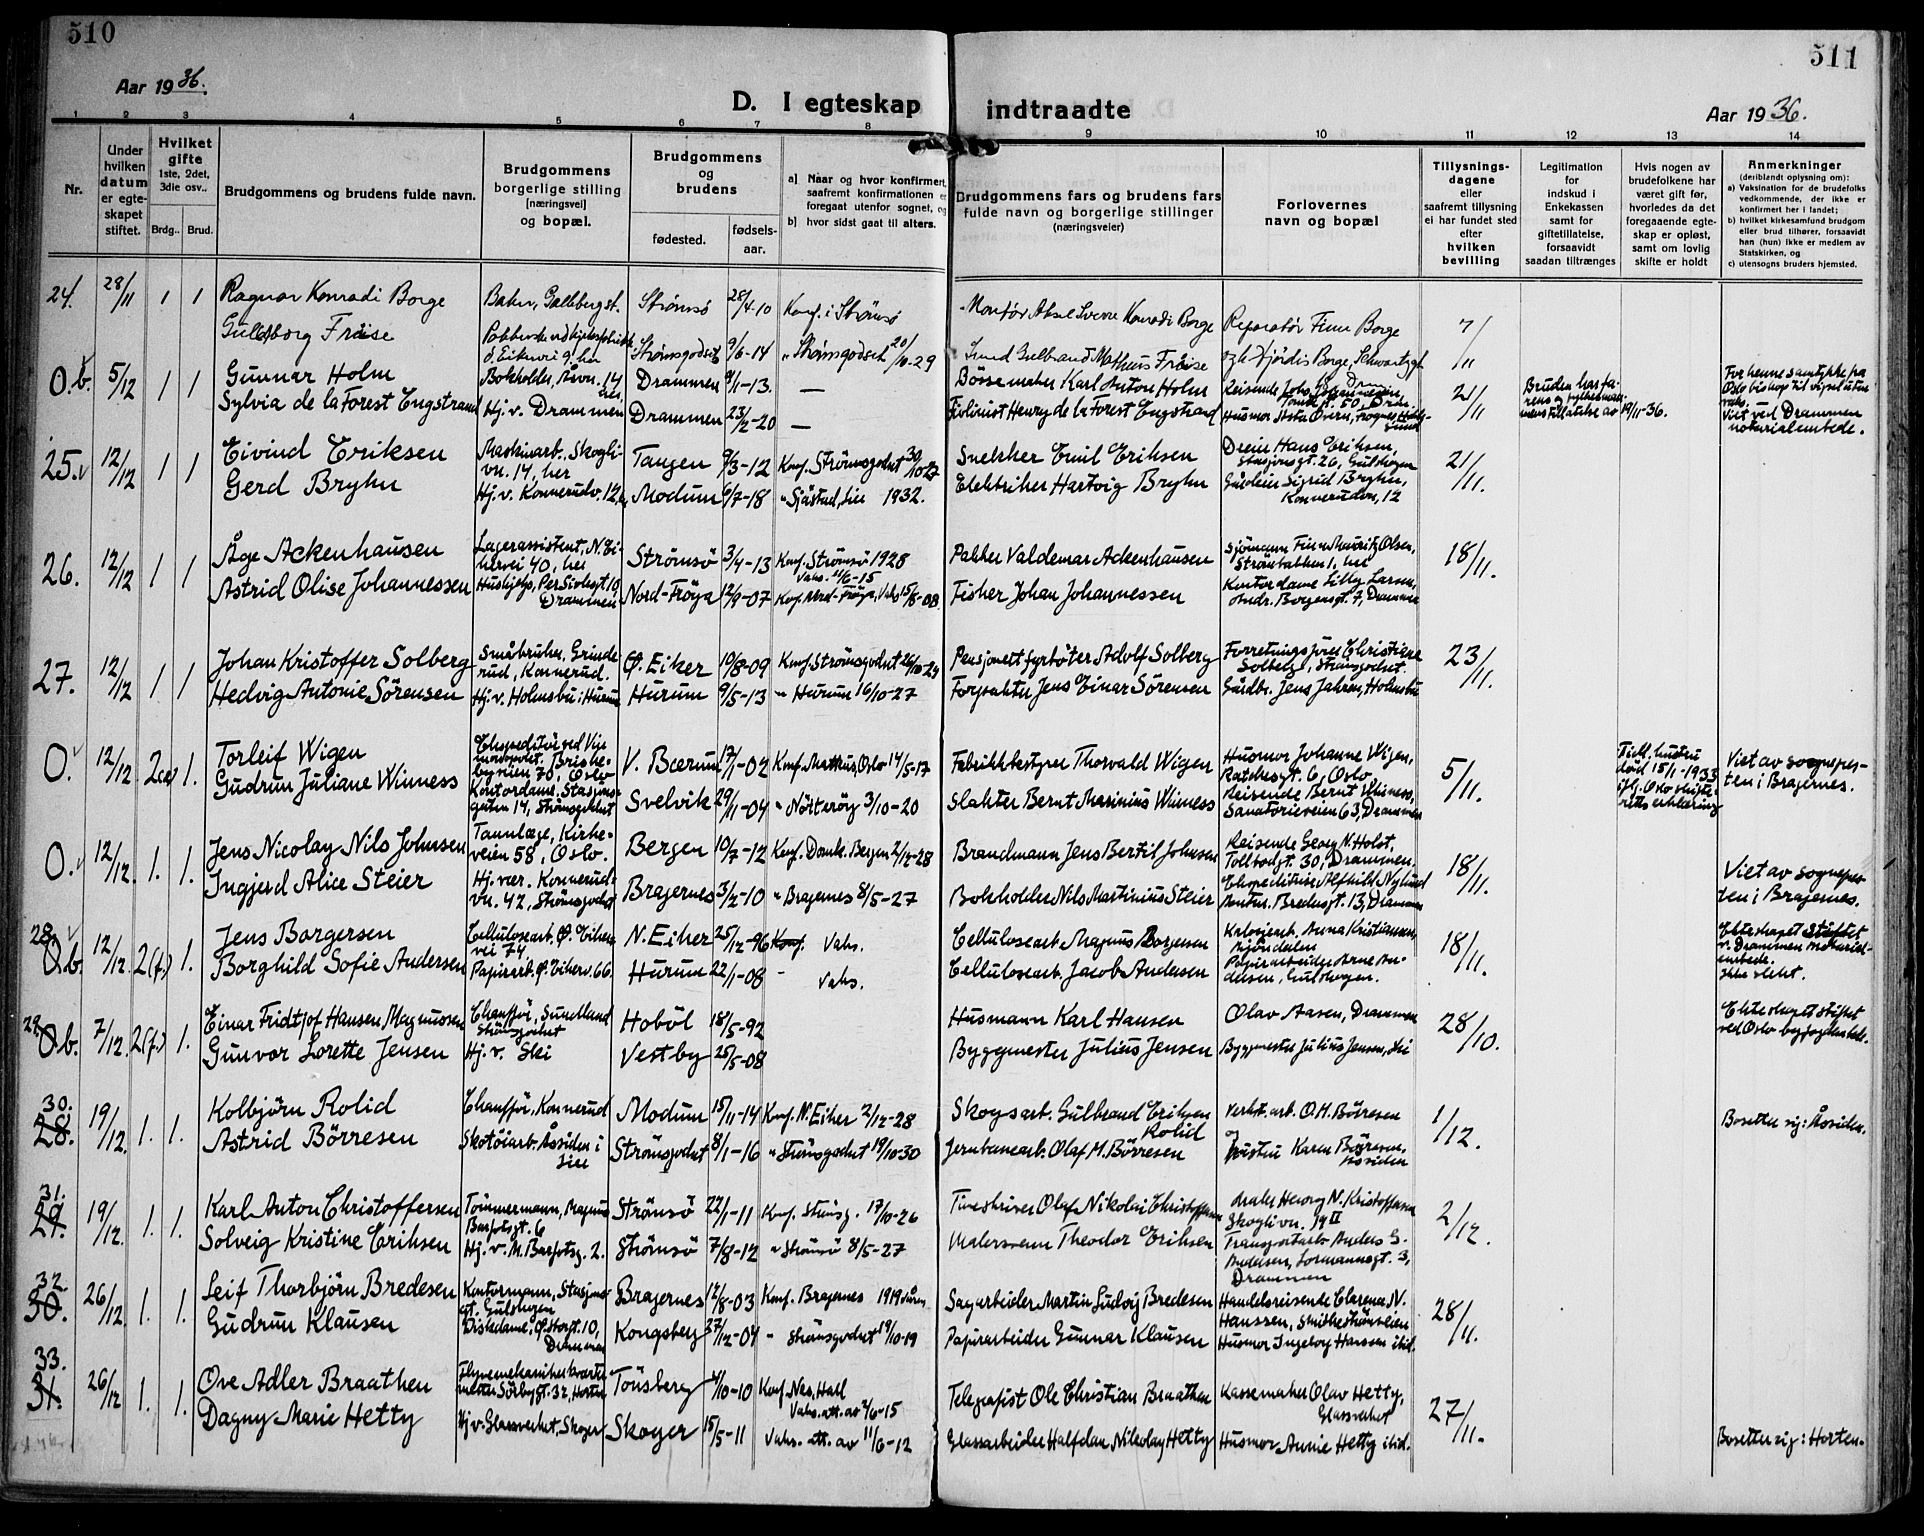 510
511
Aar 1936.
D. I egteskap
indtraadte
Aar 1936.
1 2 3 4 5 6 7 8 9 10 11 12 13 14
Nr.
Under hvilken datum er egteskapet stiftet.
Hvilket gifte 1ste, 2det, 3die osv..
Brdg..
Brud.
Brudgommens og brudens fulde navn.
Brudgommens borgerlige stilling [næringsvei] og bopæl.
Brudgommens og brudens
fødested.
fødsels-aar.
a) Naar og hvor konfirmert, saafremt konfirmationen er foregaat utenfor sognet, og
b) hvor sidst gaat til alters.
Brudgommens fars og brudens fars fulde navn og borgerlige stillinger (næringsveier)
Forlovernes navn og bopæl
Tillysnings-dagene eller saafremt tillysning ei har fundet sted efter hvilken bevilling
Legitimation for indskud i Enkekassen samt for giftetillatelse, forsaavidt saadan tiltrænges
Hvis nogen av brudefolkene har været gift før, hvorledes da det foregaaende egteskap er opløst, samt om lovlig skifte er holdt
Anmerkninger (deriblandt oplysning om):
a) Vaksination for de brudefolks vedkommende, der ikke er konfirmert her i landet;
b) hvilket kirkesamfund brudgom eller brud tilhører, forsaavidt han (hun) ikke er medlem av Statskirken, og
c) utensogns bruders hjemsted.
24. 28/11 1 1 Ragnar Konradi Borge
Strømsø 28/4-10 Konf. i Strömsö
Montör Aksel Sverre Konradi Borge Reparatör Finn Borge 7/11
Guldborg Fröise
Strømsgodset 9/6-14 " Strömsgodset 20/10-29
Smed Gulbrand Matheus Fröise
O.b. 5/12 1 1 Gunnar Holm
Bokholder, 14 her Drammen 9/1-13. —
Bössemaker Karl Anton Holm
21/11
Sylvia de la Forest Engstrand
Hj. v. Drammen Drammen 23/2-20 —
Fiolinist Henry de la Forest Engstrand
19/11-36.
Viet ved Drammen notarialembede.
25. 12/12 1 1 Eivind Eriksen
Maskinarb., Skoglivn. 14, her Tangen 9/3-12 Konf. Strømsgodset 30/10-27
Snekker Emil Eriksen Dreier Hans Eriksen, Stasjonsgt. 26, Gulskogen 21/11.
Gerd Bryhn
Hj. v. Konnerudv. 12 Modum 9/7-18 " Sjåstad, Lier 1932.
Elektriker Hartvig Bryhn Gårdeier Sigrid Bryhn, Konnerudvn. 12
26. 12/12 1 1 Åge Ackenhausen
Lagerassistent, N. Eikervei 40, her Strömsö 3/4-13 Konf. Strömsö 1928 Vaks. 11/6-15
Pakker Valdemar Ackenhausen Sjömann Finn Mauritz Olsen, 18/11.
Astrid Olise Johannessen
Drammen Nord-Fröya 12/9-07 Konf. Nord-Fröya, Vaks 15/8-08
Fisker Johan Johannessen Kontordame Lilly Larsen, Andr. Borgensgt. 7, Drammen
27. 12/12 1 1 Johan Kristoffer Solberg
Småbruker, Grinderud, Konnerud. Ø. Eiker 10/8-09 Konf. Strømsgodset 26/10-24
Pensjonert fyrböter Adolf Solberg Solberg, Strömsgodset. 23/11.
Hedvig Antonie Sörensen
Hj. v. Holmsbu i Hurum Hurum 9/5-13 " Hurum 16/10-27
Forpakter Jens Einar Sörensen Gårdbr. Jens Jahren, Holmsbu
O. 12/12 2(e) 1. Torleif Wigen
Ekspeditör ved Vinmonopolet. 70, Oslo V. Bærum 17/1-02 Konf. Matteus, Oslo 14/5-17
Fabrikkbestyrer Thorvald Wigen Husmor Johanne Wigen, 6, Oslo 5/11.
död 15/1-1933
Viet av sognepresten i Bragernes.
Gudrun Juliane Winness
Kontordame, Stasjonsgaten 14, Strömsgodset Svelvik 29/11-04 " Nötteröy 3/10-20
Slakter Bernt Marinius Winness Reisende Bernt Winness, Sanatorieveien 63, Drammen
O. 12/12. 1. 1. Jens Nicolay Nils Johnsen
Tannlæge, Kirkeveien 58, Oslo. Bergen 10/7-12 Konf. Domk. Bergen 2/12-28
Brandmann Jens Bertil Johnsen Reisende Georg N. Holst, Tollbodgt. 30, Drammen. 18/11.
Viet av sognepresten i Bragernes.
Ingjerd Alice Steier
Hj. vær. Konnerudvn. 42, Strömsgodset Bragernes 3/2-10 " Bragernes 8/5-27
Bokholder Nils Martinius Steier 13, Drammen
28. O.b. 12/12. 2(f.) 1. Jens Borgersen
Cellulosearb. Ø. Eikervei 74. N. Eiker 25/12-96 Konf. Vaks.
Cellulosearb. Magnus Borgersen Anna Kristiansen, Mjöndalen 18/11.
Ekteskapet stiftet v. Drammen notarialembede. Ikke slekt.
Borghild Sofie Andersen
Papirarb. Ø. Eikerv. 66. Hurum 22/1-08 - Vaks.
Cellulosearb. Jacob Andersen Papirarbeider Arne Andersen, Gulskogen.
29. O.b. 7/12. 2(f.) 1. Einar Fridtjof Hansen Magnussen
Chauffør, Sundland Strömsgodset Hoböl 18/5-92
Husmann Karl Hansen Olav Aasen, Drammen 28/10.
Ekteskapet stiftet ved Oslo byfogdembede.
Gunvor Lorette Jensen
Hj. v. Ski Vestby 25/5-08
Byggmester Julius Jensen Byggmester Julius Jensen, Ski
30. 28. 19/12. 1. 1. Kolbjörn Rolid
Chauffør, Konnerud Modum 15/11-14 Konf. N. Eiker 2/12-28
Skogsarb. Gulbrand Eriksen Rolid Verkst. arb. O. M. Börresen og 1/12.
Bosetter sig: Åssiden.
Astrid Börresen
Skotöiarb. Åssiden i Lier Strömsgodset 8/1-16 " Strömsgodset 19/10-30
Jernbanearb. Olaf M. Börresen hustru Karen Börresen, Åssiden
31. 29. 19/12. 1. 1. Karl Anton Christoffersen
Tömmermann, Magnus Barfotsgt. 6 Strömsö 22/1-11 Konf. Strömsg. 17/10-26
Olaf Nikolai Christoffersen Maler Georg N. Kristoffersen Skoglivn. 14 II 2/12.
Solveig Kristine Eriksen
Hj. v. M. Barfotsg. 2. Strömsö 7/8-12 " Strömsö 8/5-27
Malersvenn Theodor Eriksen Transportarb. Anders G. Andersen, Lormannsgt. 3, Drammen
32. 30. 26/12. 1. 1. Leif Thorbjörn Bredesen
Kontormann, Stasjonsgt. Gulskogen Bragernes 12/8-03 Konf. Bragernes 1919 våren
Sagarbeider Martin Ludvig Bredesen Handelsreisende Clarence N. Hanssen, Smithestrømveien 28/11.
Gudrun Klausen
Diskedame, Ø. Storgt. 10, Drammen Kongsberg 27/12-04 " Strömsgodset 19/10-19
Papirarbeider Gunnar Klausen Husmor Ingeborg Hanssen ibid.
33. 31. 26/12 1. 1. Ove Adler Braathen
Flyvemekaniker kvartermester Sörbygt. 32, Horten Tönsberg 4/10-10 Konf. Nes, Hall. Vaks. att. av 2/6-15
Telegrafist Ole Christian Braathen Kassemaker Olav Hetty, Glassverket 27/11.
Dagny Marie Hetty
Hj. v. Glassverket, Skoger Skoger 15/5-11 Vaks. att. av 11/6-12
Glassarbeider Halfdan Nikolay Hetty Husmor Annie Hetty ibid.
Bosetter sig: Horten.